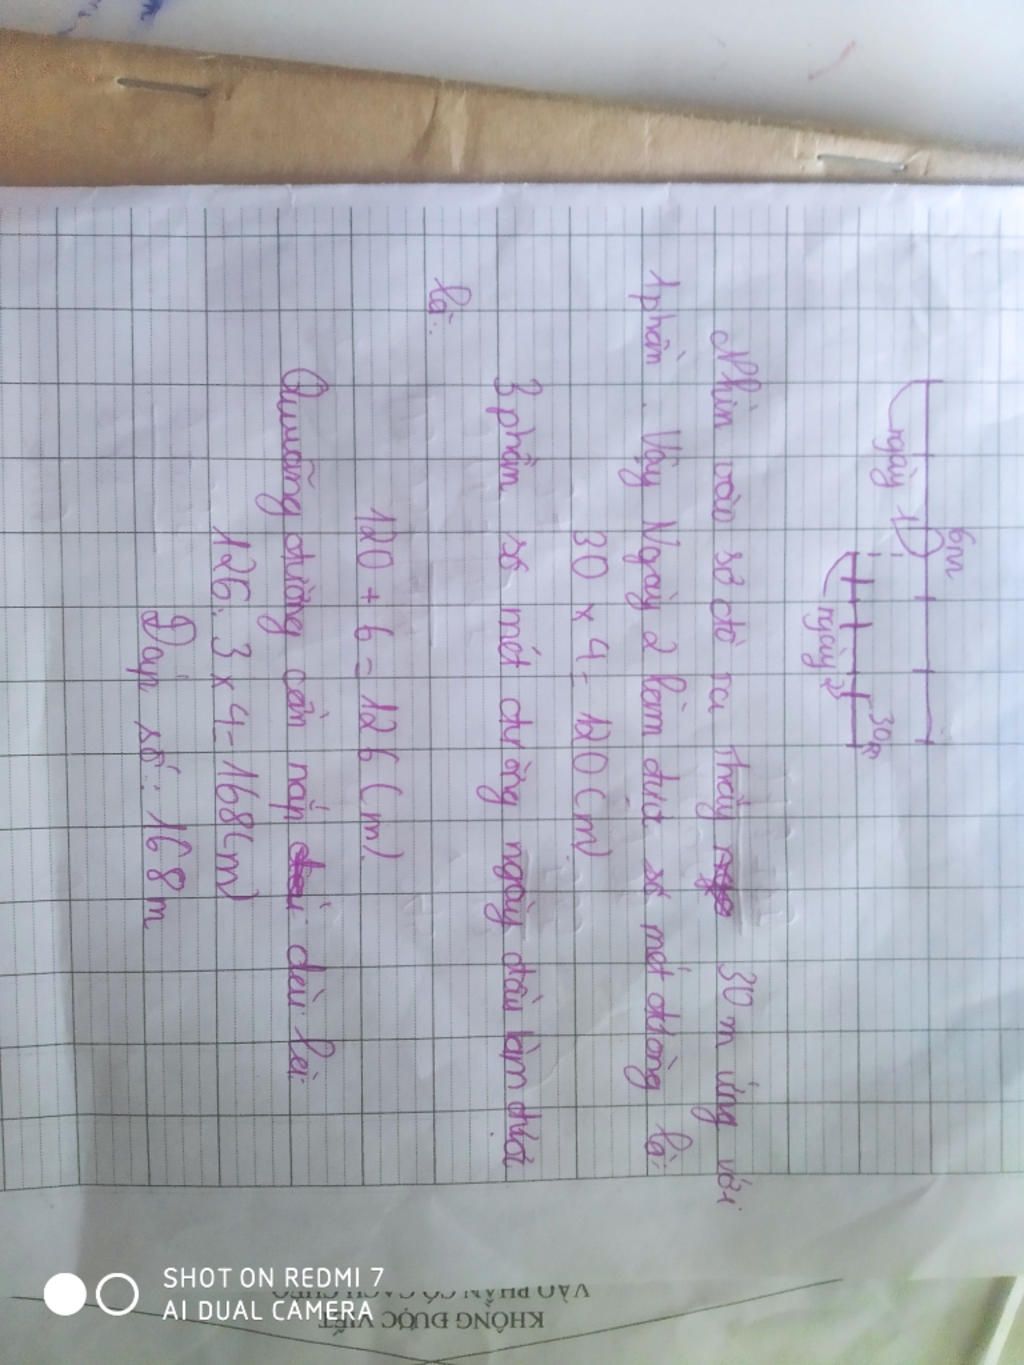 6m
ngày 1
30m
ngày 2
Nhìn vào sơ đồ ta thấy 30 m ứng với
1 phần. Vậy Ngày 2 làm được số mét đường là:
30 x 4 = 120 (m)
3 phần số mét đường ngày đầu làm được
là:
120 + 6 = 126 (m).
Quãng đường cần nắp dài là:
126: 3 x 4 = 168 (m)
Đáp số: 168 m
SHOT ON REDMI 7
AI DUAL CAMERA
KHÔNG ĐƯỢC VIẾT
VÀO PHẦN CÓ GẠCH CHÉO